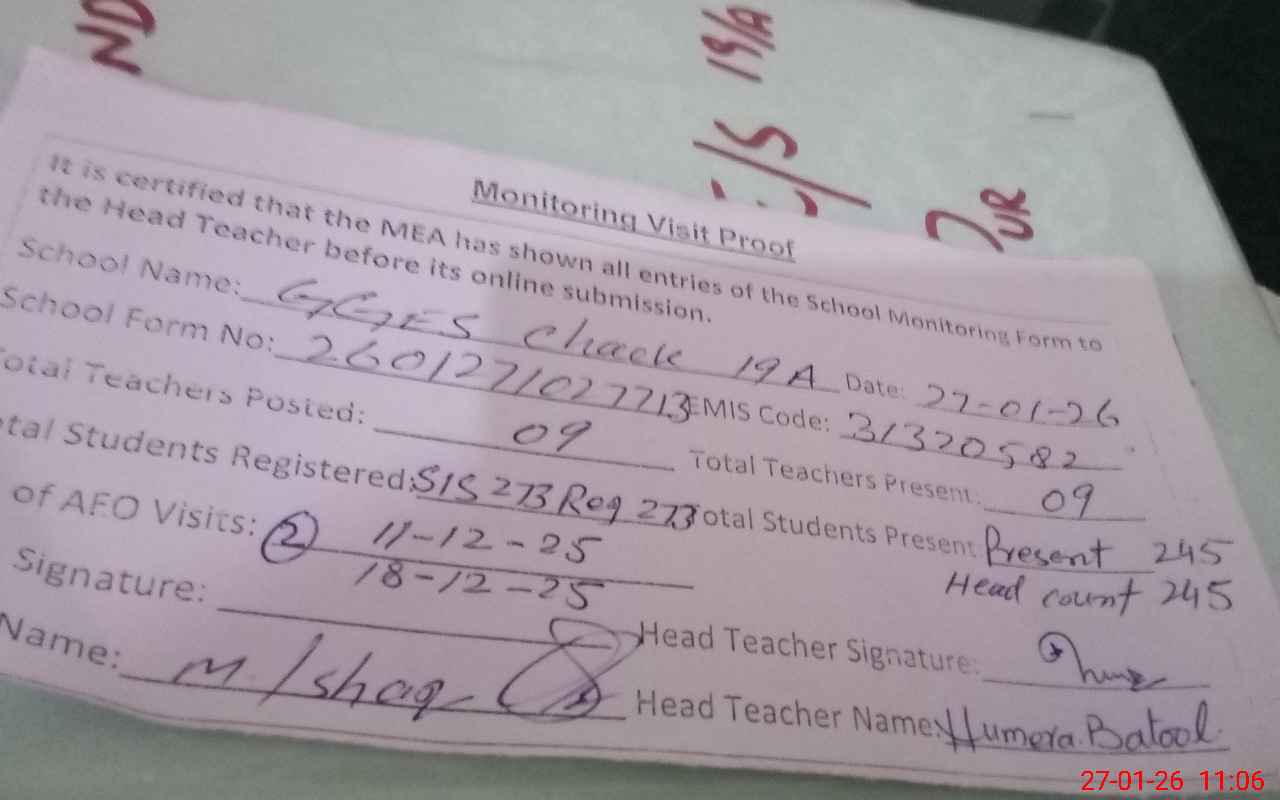 ND
19/A
UR
Monitoring Visit Proof
It is certified that the MEA has shown all entries of the School Monitoring Form to
the Head Teacher before its online submission.
School Name: GGES Chack 19A Date: 27-01-26
School Form No: 2601271027713 EMIS Code: 31320582
otal Teachers Posted: 09 Total Teachers Present: 09
tal Students Registered: SIS 273 Reg 273 Total Students Present Present 245
Head count 245
of AEO Visits: 2 11-12-25
18-12-25
Signature: Head Teacher Signature:
Name: M. Ishaq Head Teacher Name: Humera Batool
27-01-26 11:06